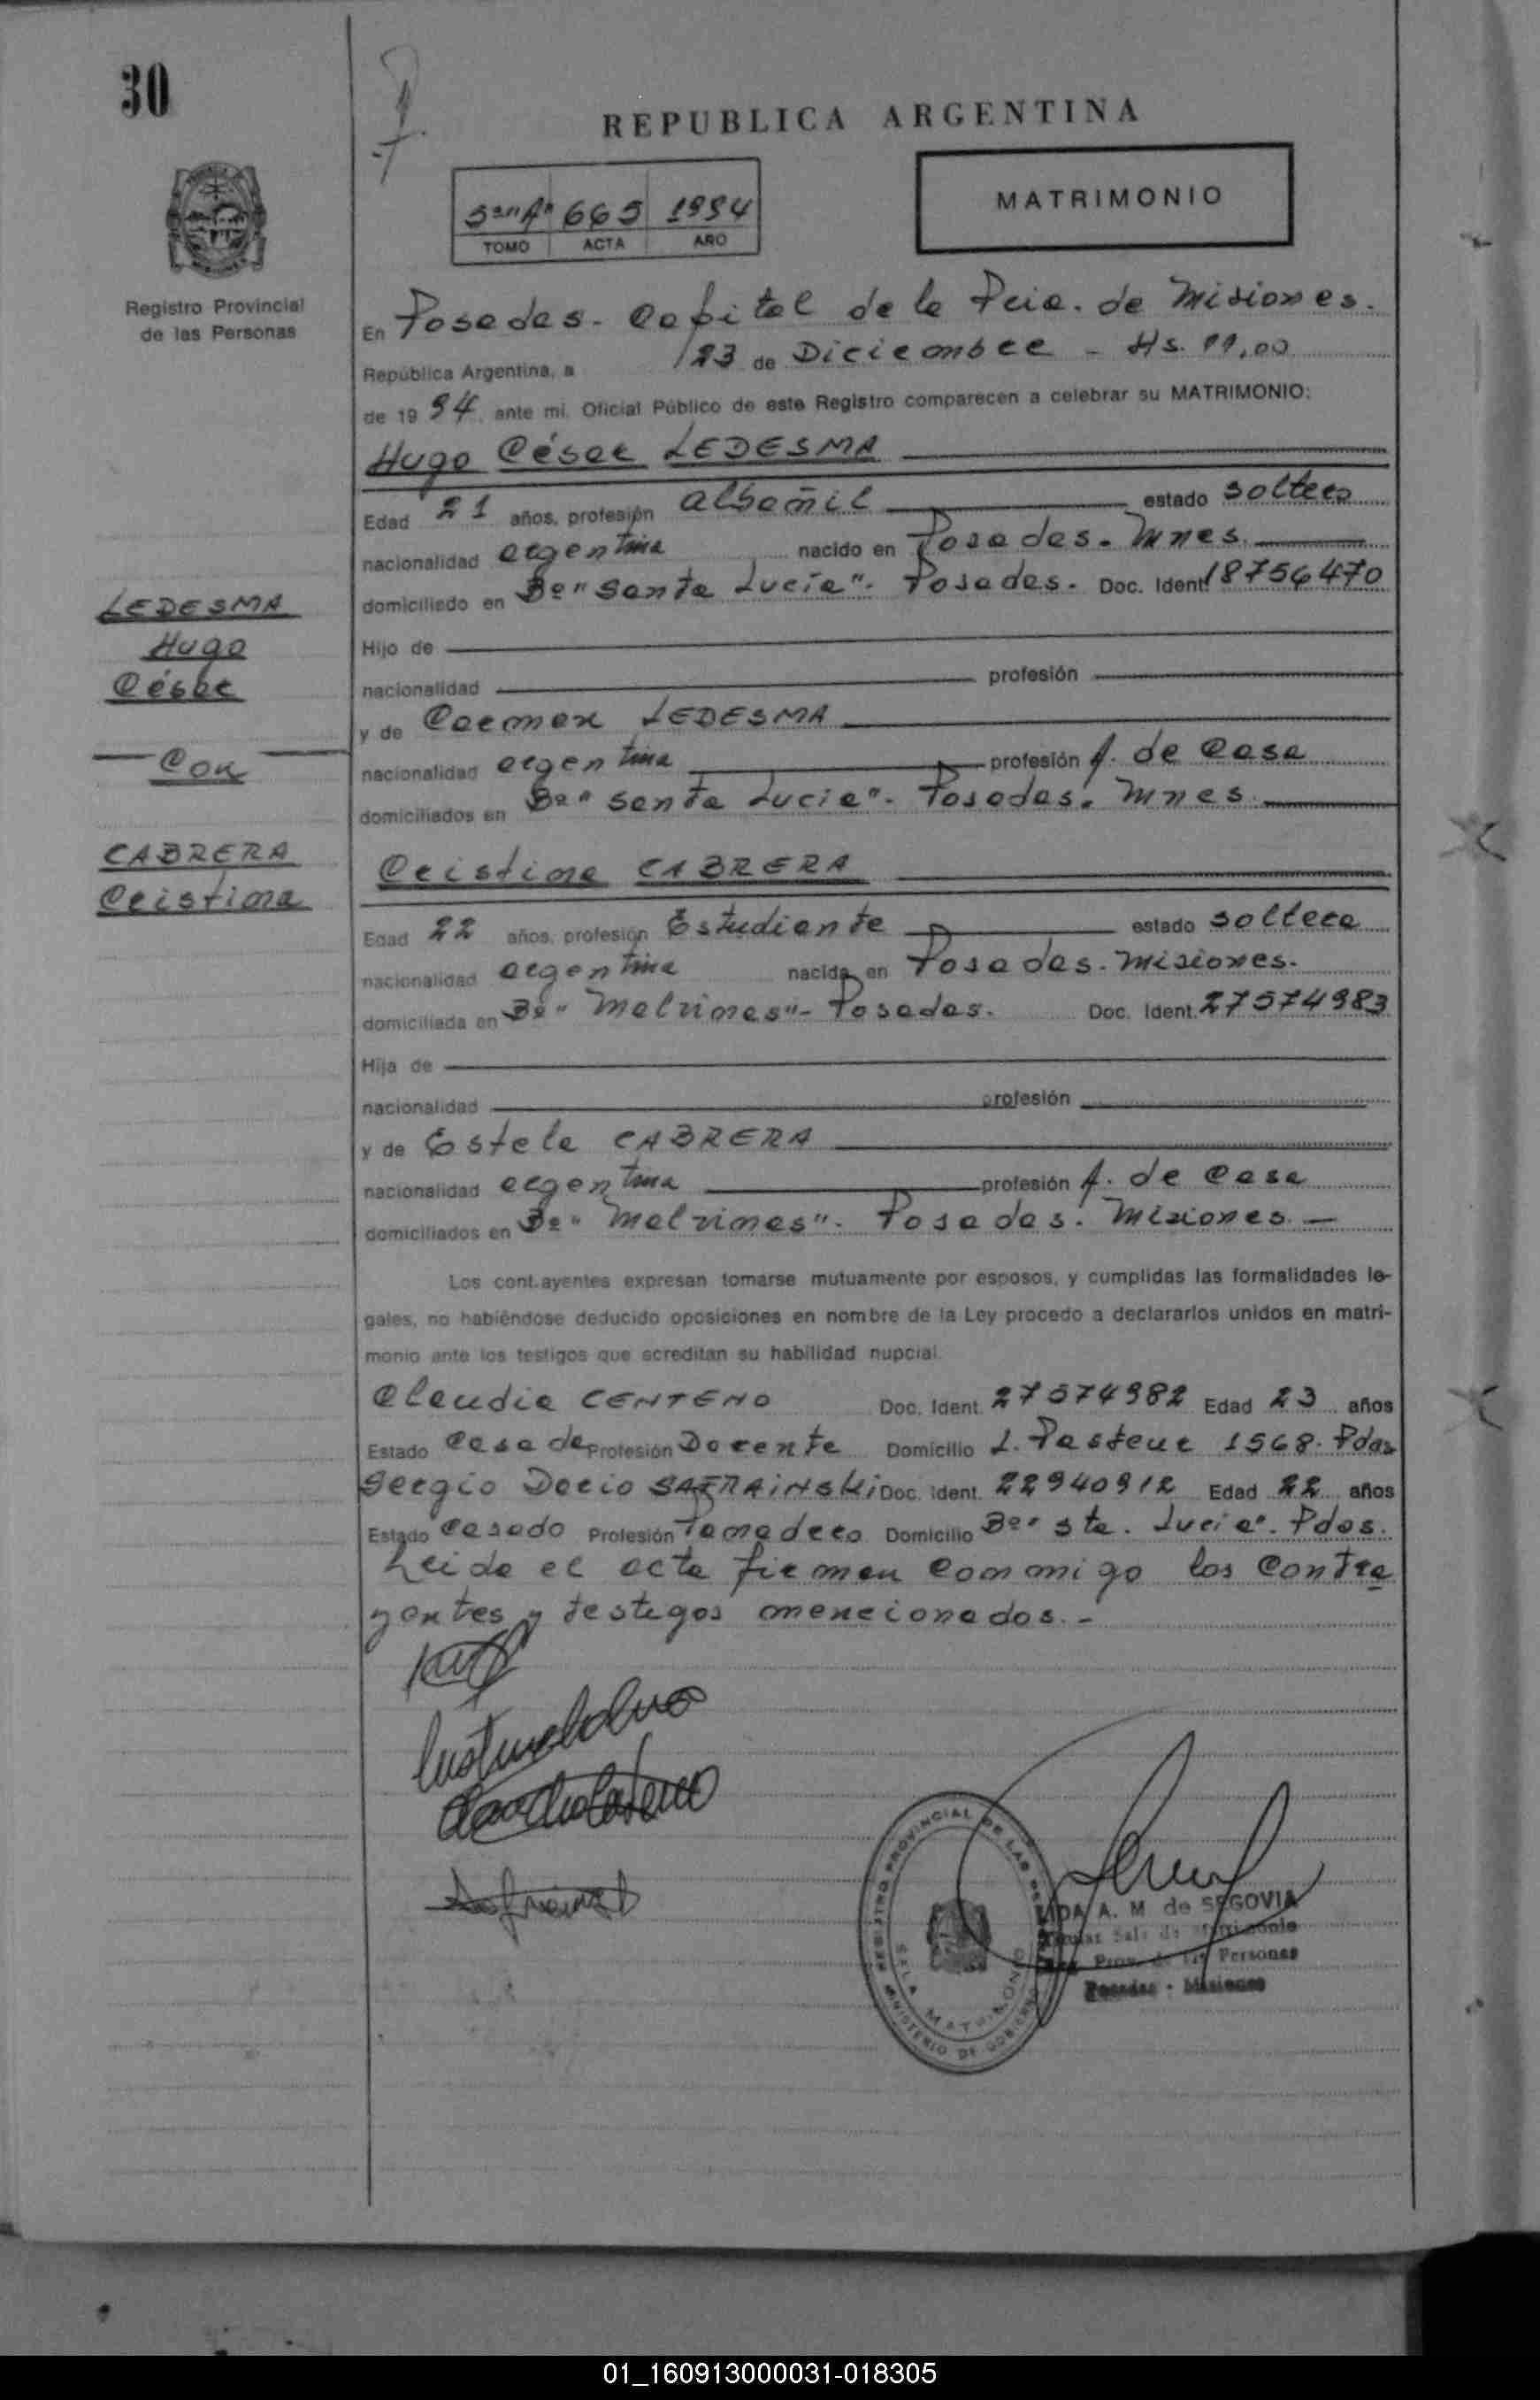 30
REPUBLICA ARGENTINA
5to "A" 665 1994
TOMO ACTA AÑO
MATRIMONIO
Registro Provincial
de las Personas
En Posadas - Capital de la Pcia. de Misiones.
República Argentina, a 23 de Diciembre - Hs. 11,00
de 1994, ante mi, Oficial Público de este Registro comparecen a celebrar su MATRIMONIO:
Hugo César LEDESMA
Edad 21 años, profesión albañil estado soltero
nacionalidad argentina nacido en Posadas - Mnes.
domiciliado en Bº "Santa Lucía" - Posadas. Doc. Ident. 18756470
Hijo de
nacionalidad profesión
y de Carmen LEDESMA
nacionalidad argentina profesión A. de Casa
domiciliados en Bº "Santa Lucia" - Posadas. Mnes.
LEDESMA
Hugo
César
Con
CABRERA
Cristina
Cristina CABRERA
Edad 22 años, profesión Estudiante estado soltera
nacionalidad argentina nacida en Posadas - Misiones.
domiciliada en Bº "Malvinas" - Posadas. Doc. Ident. 27574983
Hija de
nacionalidad profesión
y de Estela CABRERA
nacionalidad argentina profesión A. de Casa
domiciliados en Bº "Malvinas" - Posadas. Misiones. -
Los contrayentes expresan tomarse mutuamente por esposos, y cumplidas las formalidades le-
gales, no habiéndose deducido oposiciones en nombre de la Ley procedo a declararlos unidos en matri-
monio ante los testigos que acreditan su habilidad nupcial.
Claudia CENTENO Doc. Ident. 27574982 Edad 23 años
Estado Casada Profesión Docente Domicilio L. Pasteur 1568 - Pdas
Sergio Dario SAFRAiNSKi Doc. Ident. 22940912 Edad 22 años
Estado Casado Profesión Panadero Domicilio Bº "Sta. Lucia" - Pdas.
Leida el acta firman conmigo los contra
yentes y testigos mencionados. -
REGISTRO PROVINCIAL DE LAS PERSONAS
SALA MATRIMONIO
MINISTERIO DE GOBIERNO
A. M. de SEGOVIA
Titular Sala de Matrimonio
Reg. Prov. de las Personas
Posadas - Misiones
01_160913000031-018305